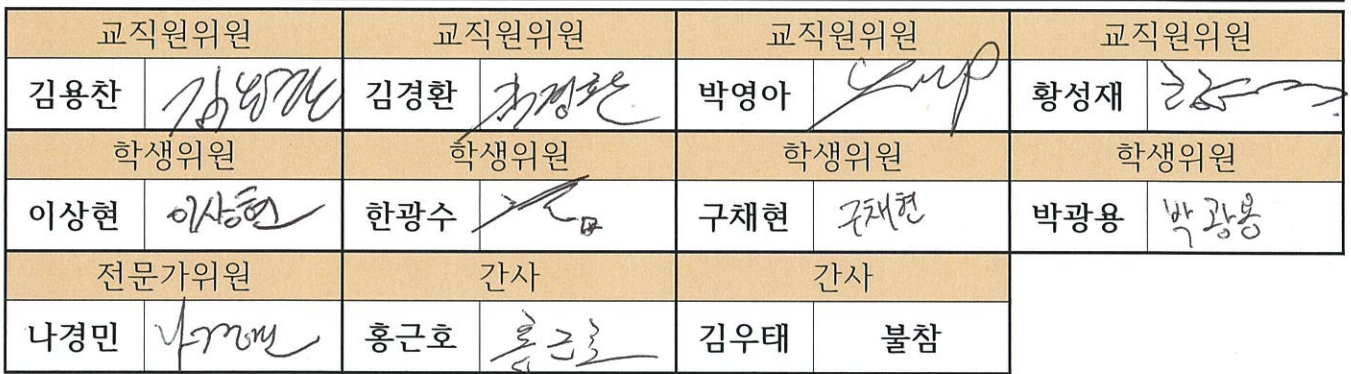 교직원위원 교직원위원 교직원위원 교직원위원
김용찬 김경환 박영아 황성재
학생위원 학생위원 학생위원 학생위원
이상현 이상현 한광수 구채현 구채현 박광용 박광용
전문가위원 간사 간사
나경민 홍근호 홍근호 김우태 불참